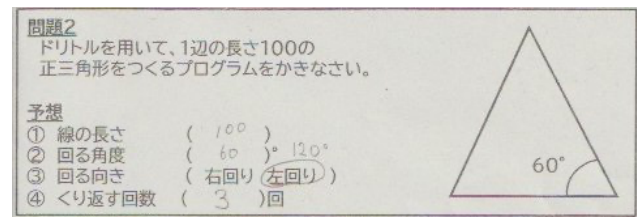 問題2
ドリトルを用いて、1辺の長さ100の
正三角形をつくるプログラムをかきなさい。
予想
① 線の長さ ( 100 )
② 回る角度 ( 60 )° 120°
③ 回る向き ( 右回り 左回り )
④ くり返す回数 ( 3 )回
60°